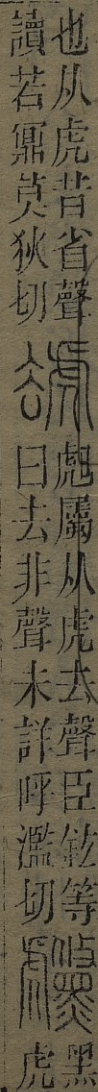 也从虎昔省聲
讀若鼏莫狄切
䖑屬从虎去聲臣鉉等
曰去非聲未詳呼濫切
虪
黑
虎